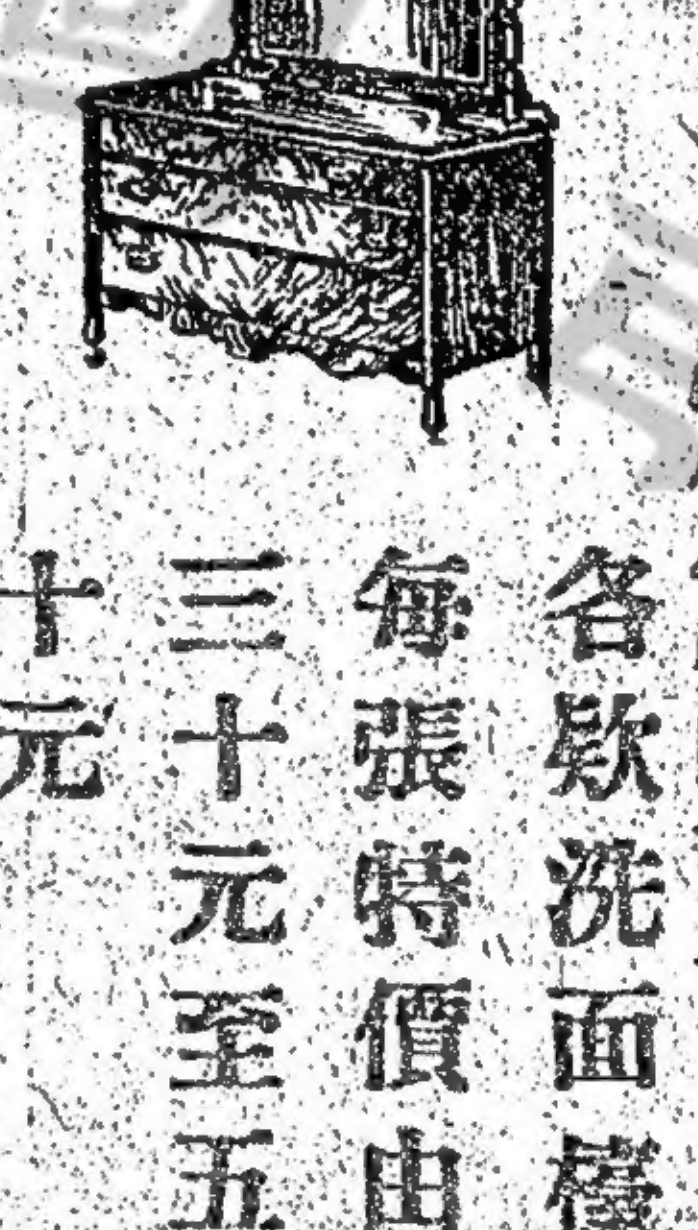 各欵洗面檯
每張特價由
三十元至五
十元